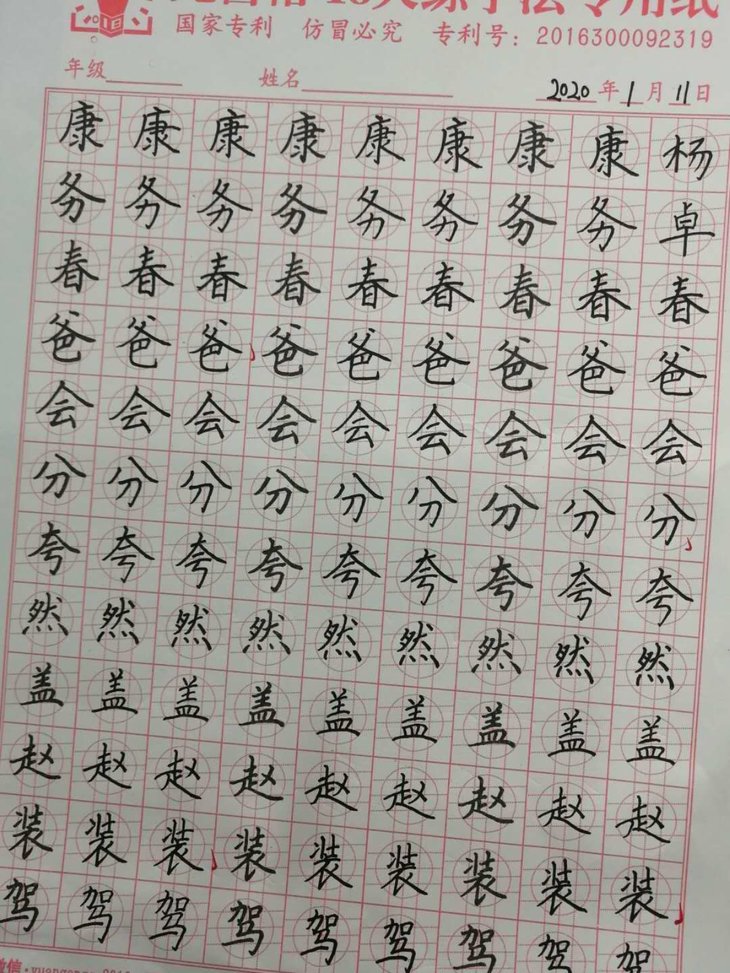 国家专利 仿冒必究 专利号：2016300092319
年级 姓名 2020年1月11日
康康康康康康康康杨
务务务务务务务务卓
春春春春春春春春春
爸爸爸爸爸爸爸爸爸
会会会会会会会会会
分分分分分分分分分
夸夸夸夸夸夸夸夸夸
然然然然然然然然然
盖盖盖盖盖盖盖盖盖
赵赵赵赵赵赵赵赵赵
装装装装装装装装装
驾驾驾驾驾驾驾驾驾